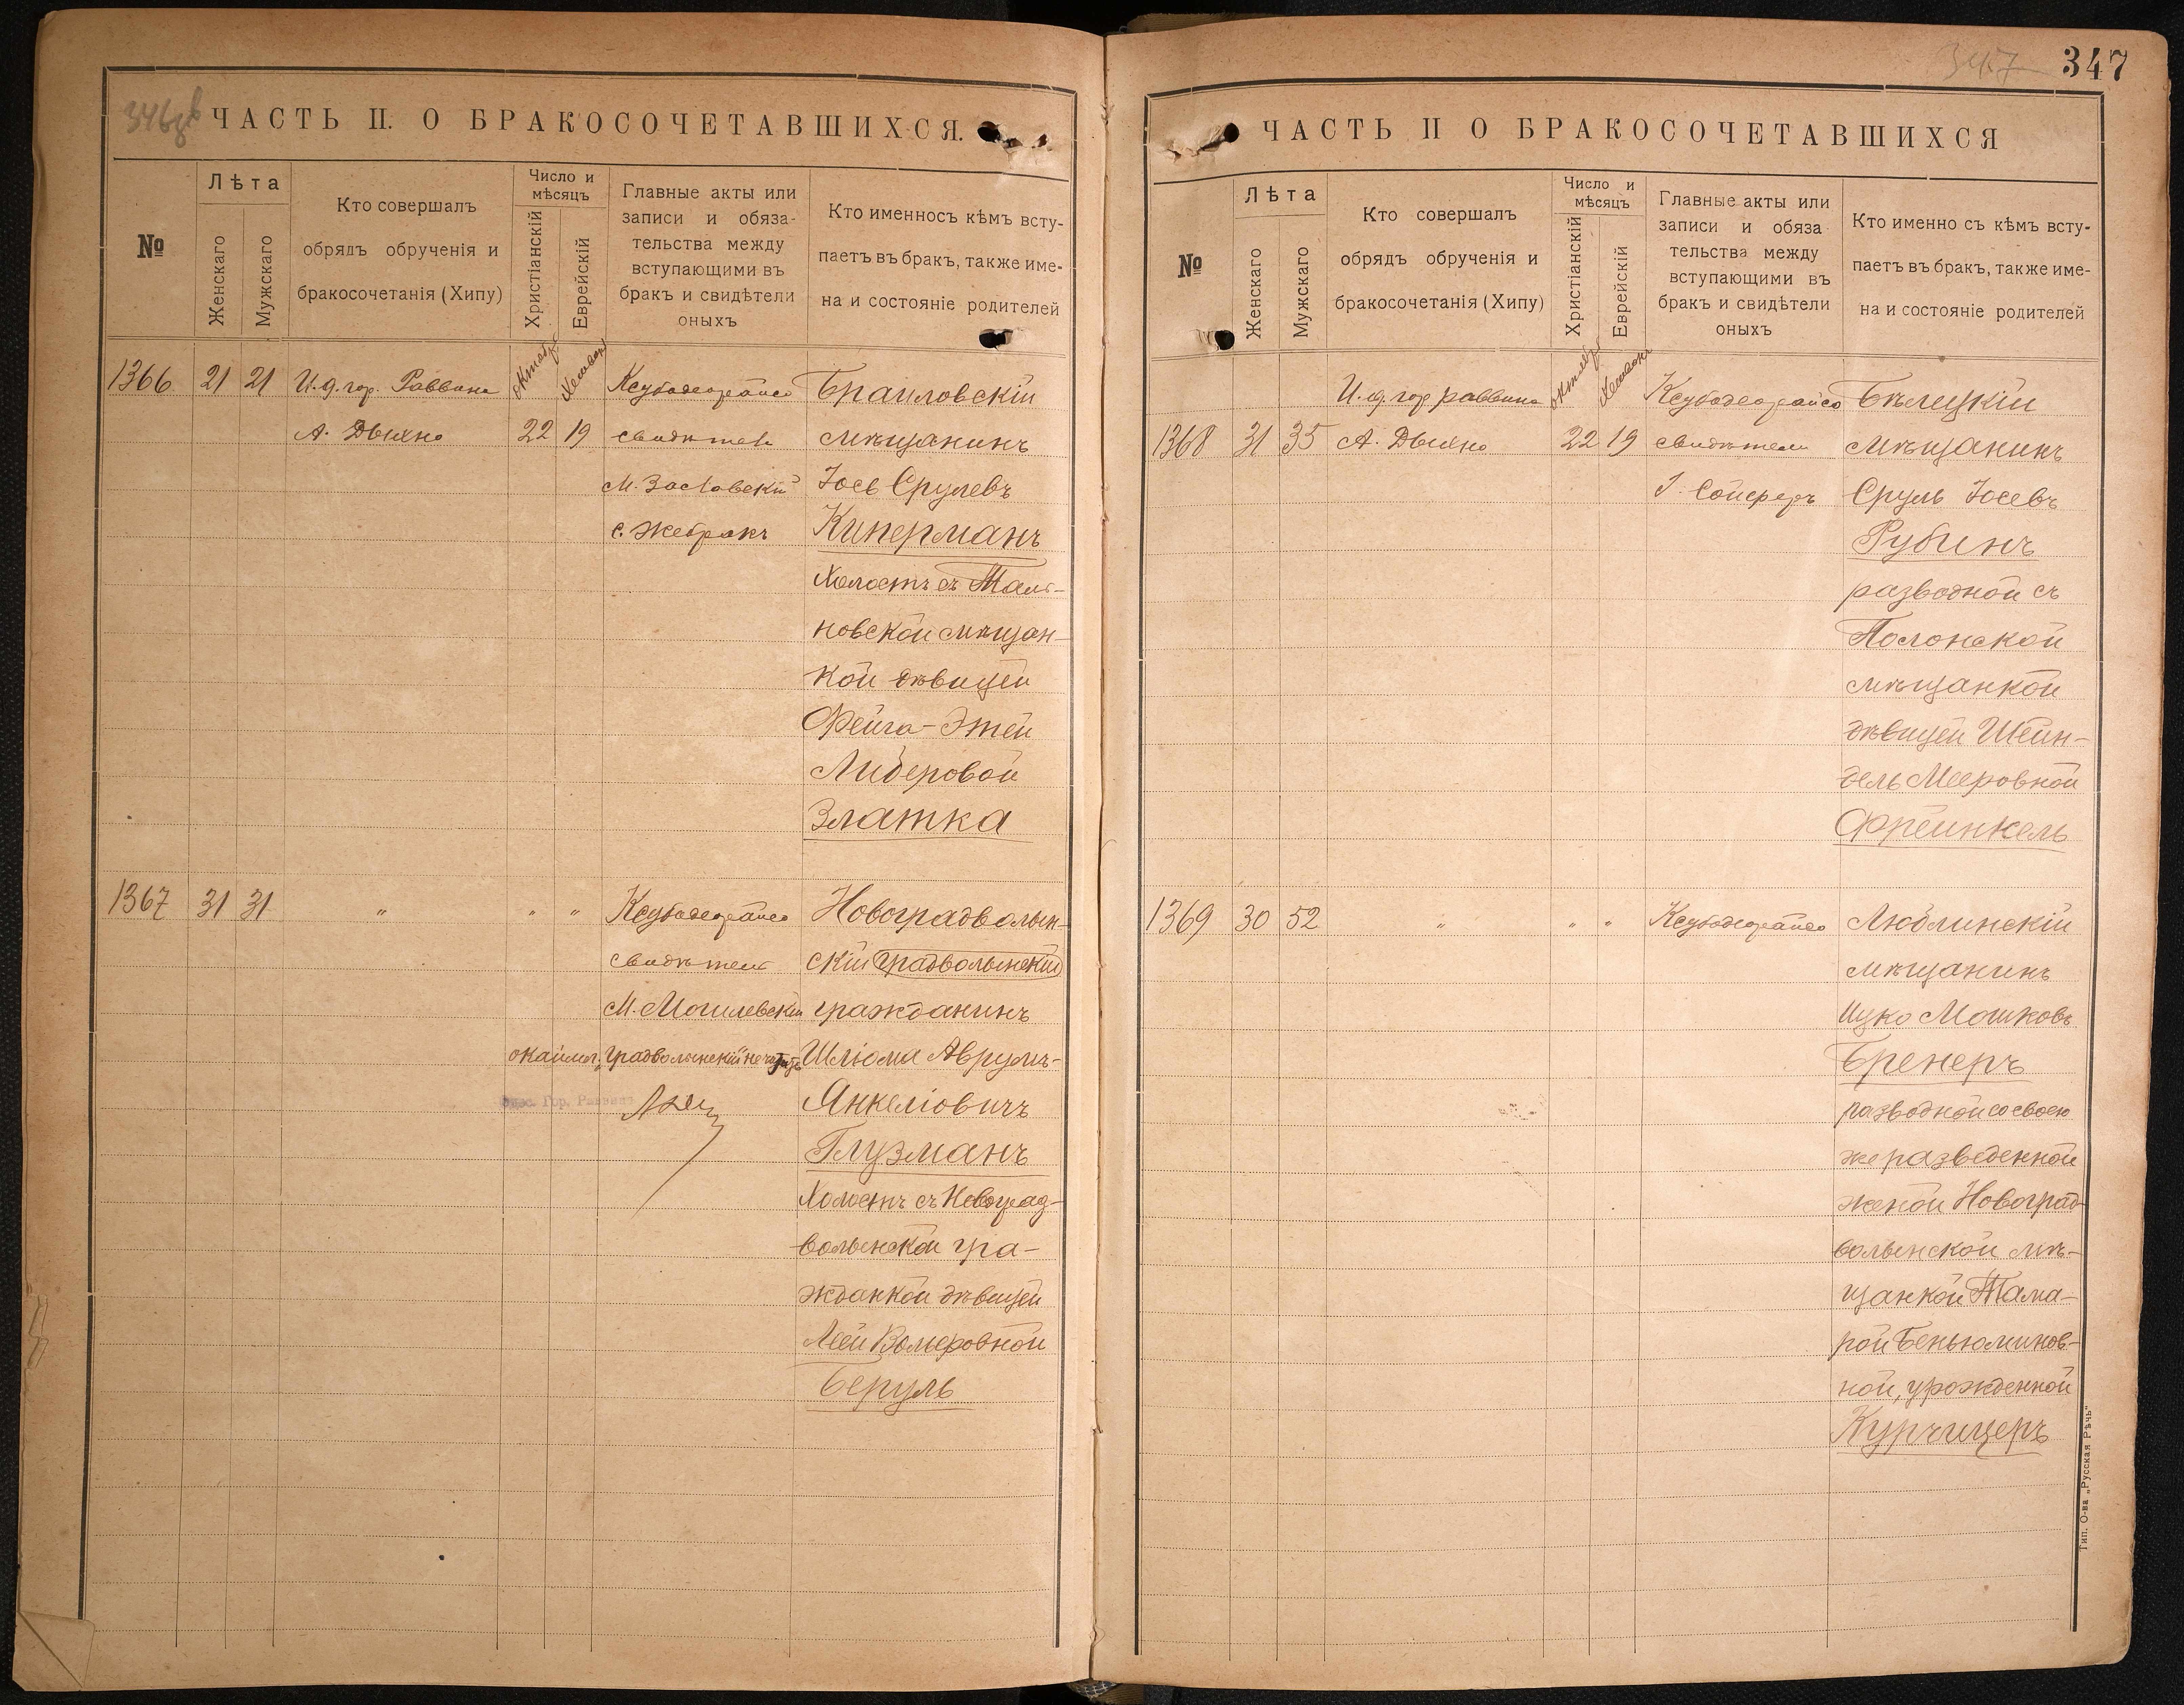 346об
ЧАСТЬ II. О БРАКОСОЧЕТАВШИХСЯ.
№
Лѣта
Женскаго
Мужскаго
Кто совершалъ
обрядъ обрученія и
бракосочетанія (Хипу)
Число и
мѣсяцъ
Христіанскій
Еврейскій
Главные акты или
записи и обяза-
тельства между
вступающими въ
бракъ и свидѣтели
оныхъ
Кто именносъ кѣмъ всту-
паетъ въ бракъ, также име-
на и состояніе родителей
1366 21 21 И. д. гор. Раввина
А. Двинно
октябр. Хешвонъ
22 19
Ксубодеорайсо
свидѣтели
М. Заславскій
С. Жебракъ
Браиловскій
мѣщанинъ
Іось Срулевъ
Киперманъ
Холостъ съ Таль-
новской мѣщан-
кой дѣвицей
Фейга-Этей
Лидеровой
Златка
1367 31 31 " " "
Ксубодеорайсо
свидѣтели
М. Могилевскій
окаймл. "градволынскій" не читать
Гор. Раввина
Новоградволын-
скій градволынскій
гражданинъ
Шліома Аврумъ-
Янкеліовичъ
Глузманъ
Холостъ съ Новоград-
волынской гра-
жданкой дѣвицей
Леей Вольеровной
Беруль
347
347
ЧАСТЬ II О БРАКОСОЧЕТАВШИХСЯ
№
Лѣта
Женскаго
Мужскаго
Кто совершалъ
обрядъ обрученія и
бракосочетанія (Хипу)
Число и
мѣсяцъ
Христіанскій
Еврейскій
Главные акты или
записи и обяза
тельства между
вступающими въ
бракъ и свидѣтели
оныхъ
Кто именно съ кѣмъ всту-
паетъ въ бракъ, также име-
на и состояніе родителей
1368 31 35
И. д. гор. раввина
А. Двинно
октябр. Хешвонъ
22 19
Ксубодеорайсо
свидѣтели
І. Сойферъ
Бѣлецкій
мѣщанинъ
Сруль Іосевъ
Рубинъ
разводной съ
Полонской
мѣщанкой
дѣвицей Шейн-
дель Мееровной
Фрейнкель
1369 30 52 " " "
Ксубодеорайсо
Люблинскій
мѣщанинъ
Ицко Мошковъ
Бренеръ
разводной со своею
же разведенной
женой Новоград-
волынской мѣ-
щанкой Тама-
рой Беньюминов-
ной, урожденной
Курчицеръ
Тип. О-ва „Русская Рѣчь"